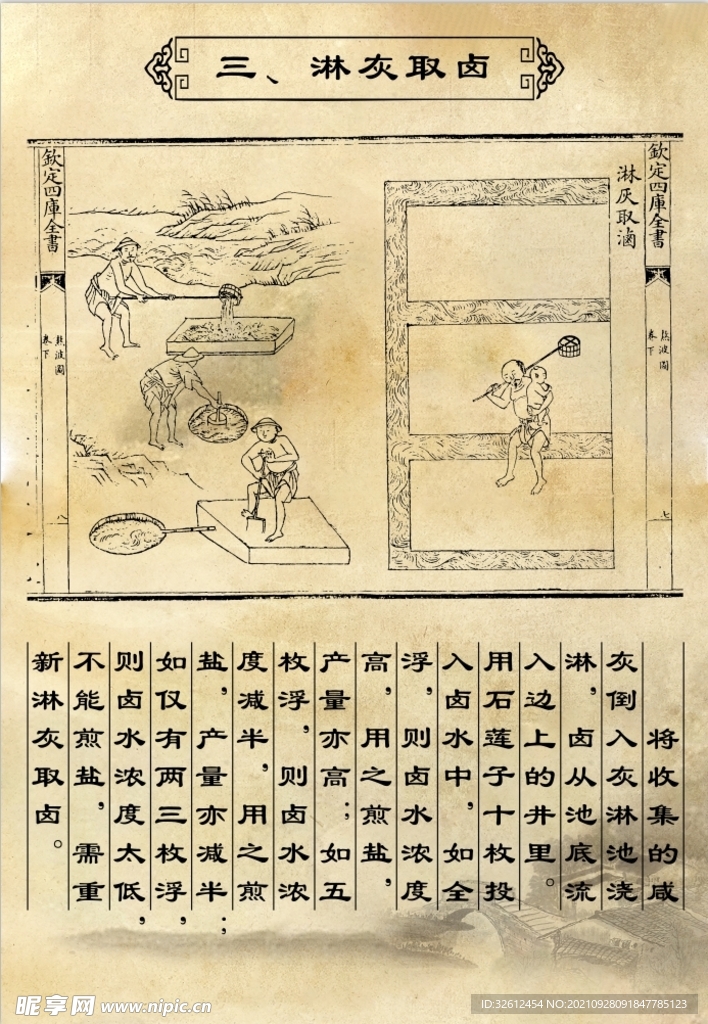 三、淋灰取卤
欽定四庫全書
淋灰取滷
欽定四庫全書
卷下
七
卷下
八
将收集的咸
灰倒入灰淋池浇
淋，卤从池底流
入边上的井里。
用石莲子十枚投
入卤水中，如全
浮，则卤水浓度
高，用之煎盐，
产量亦高；如五
枚浮，则卤水浓
度减半，用之煎
盐，产量亦减半；
如仅有两三枚浮，
则卤水浓度太低，
不能煎盐，需重
新淋灰取卤。
昵享网 www.nipic.cn
ID:32612454 NO:20210928091847785123